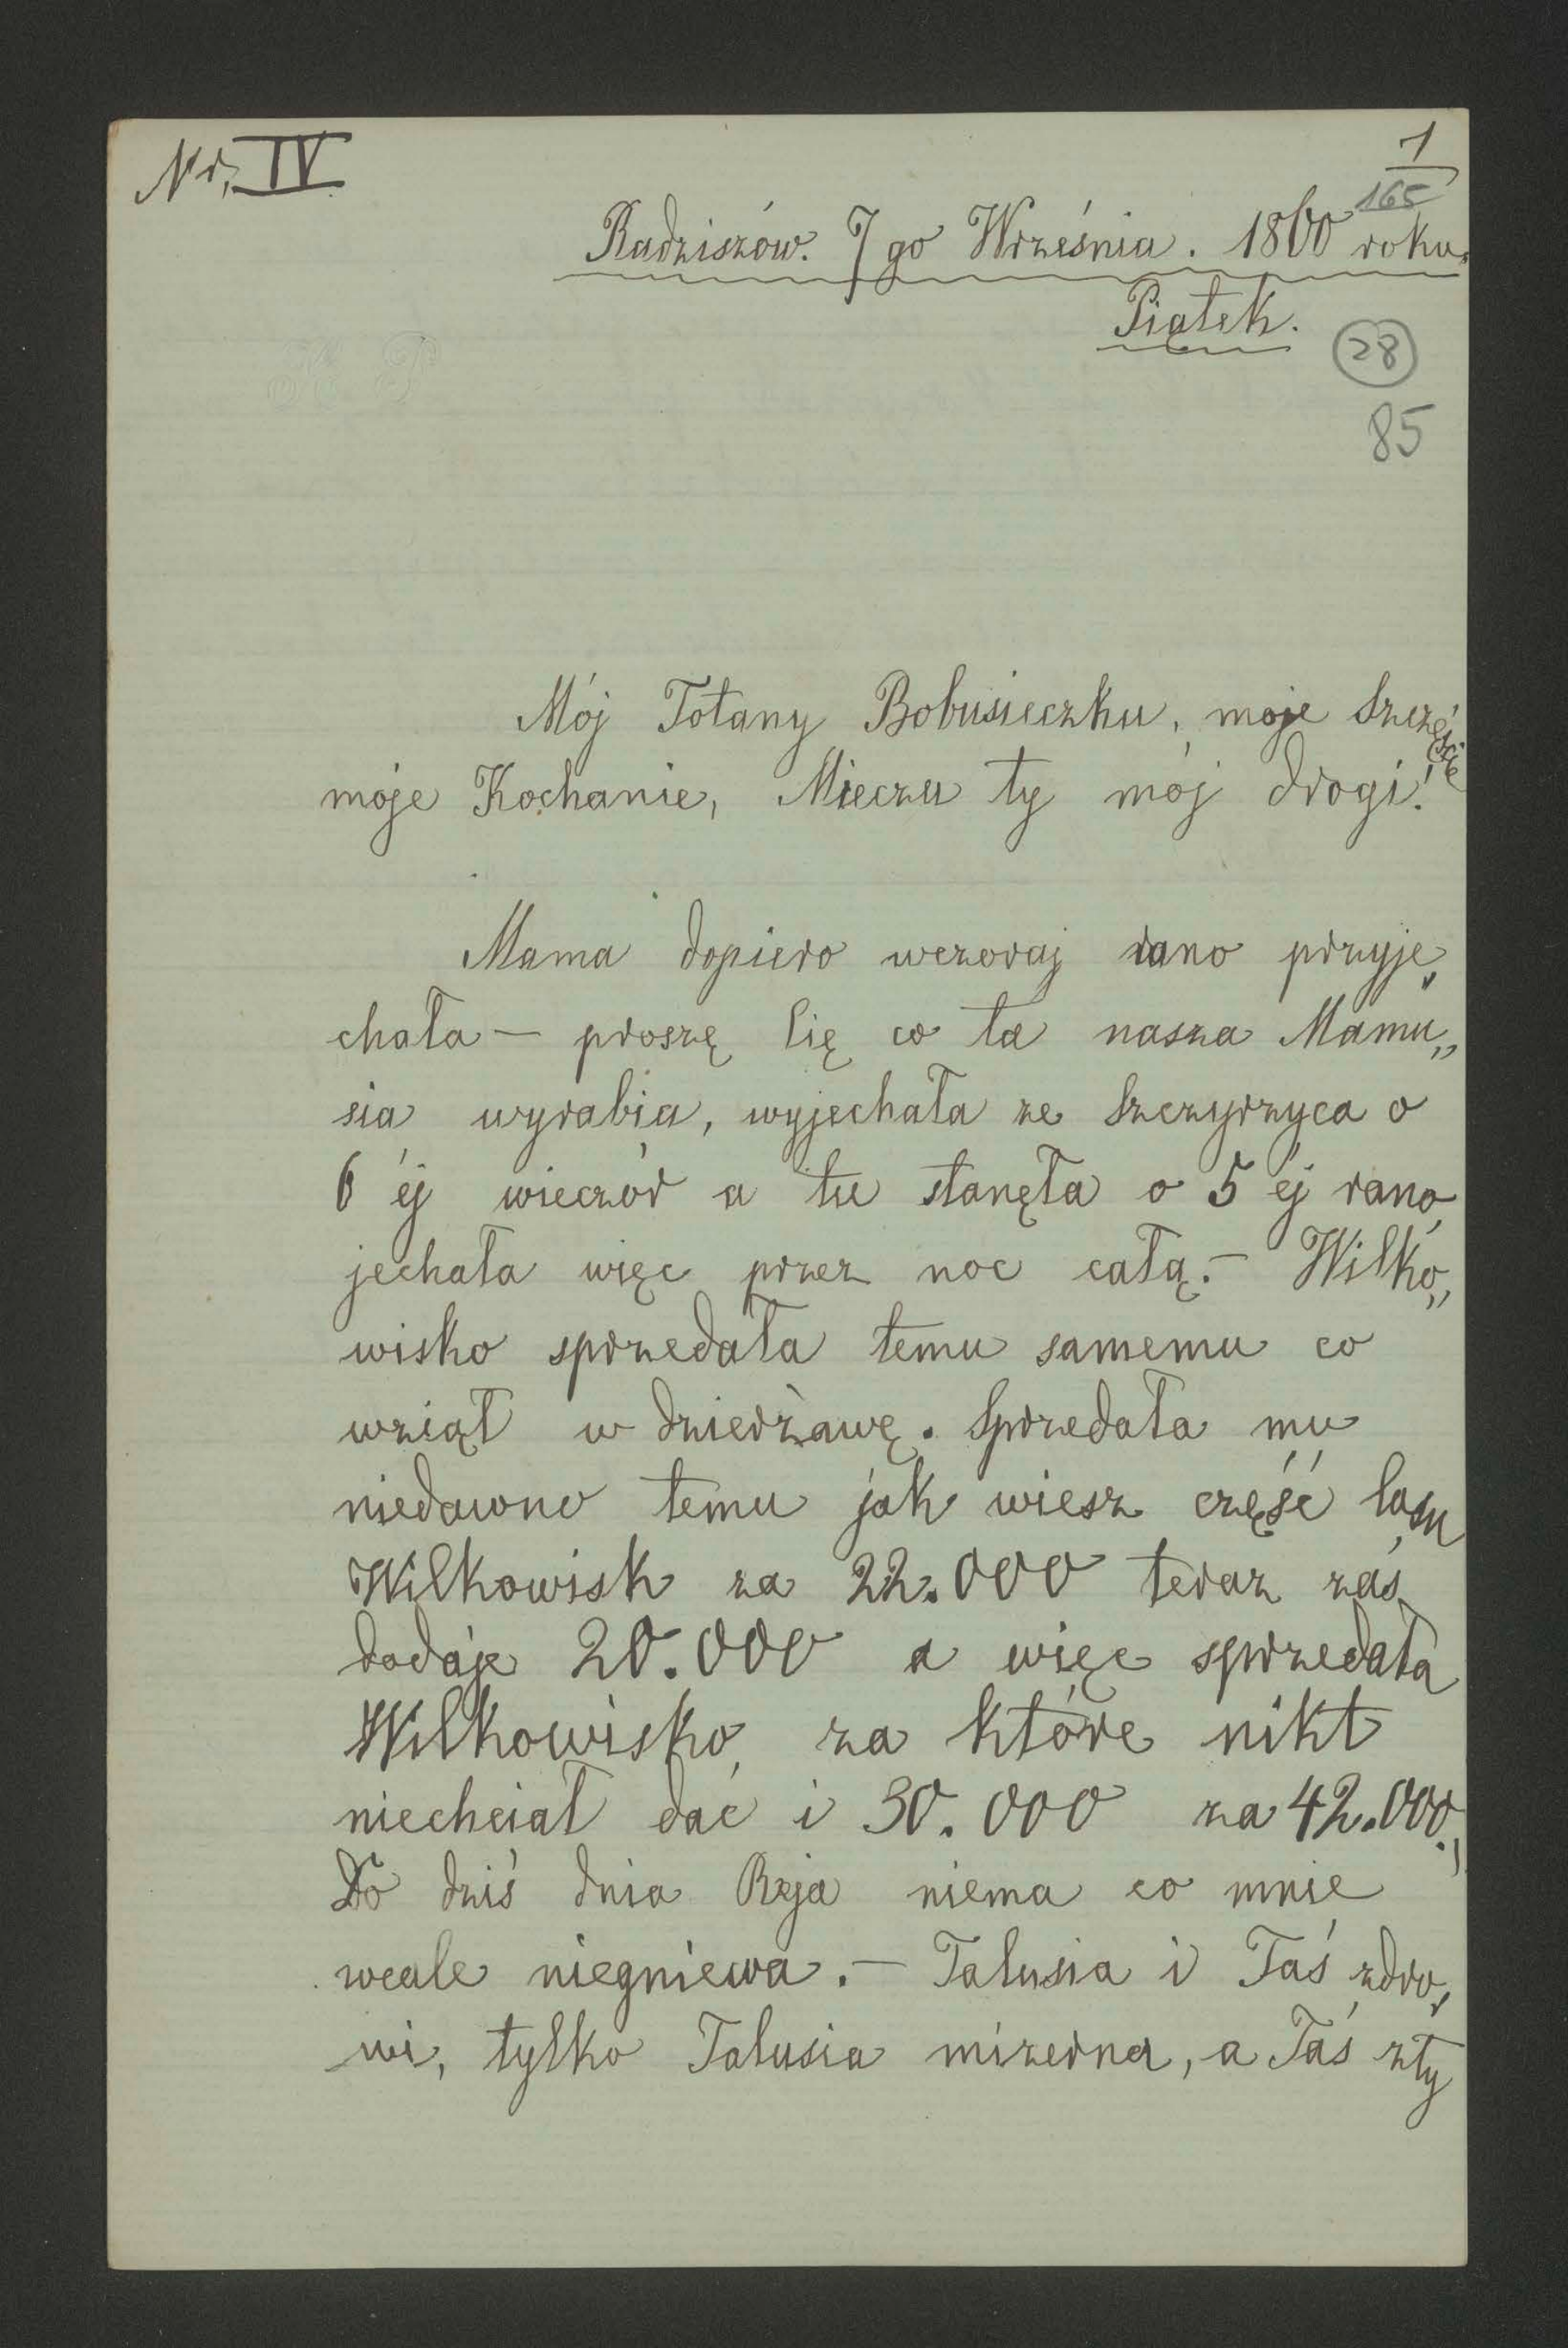 Nr. IV
1
165
Radziszów. 7 go Września. 1860 roku.
Piątek.
28
85
Mój Totany Bobusieczku, moje Szczęście
moje Kochanie, Mieczu ty mój drogi!
Mama dopiero wczoraj rano przyje„
chała — proszę Cię co ta nasza Mamu„
sia wyrabia, wyjechała ze Szczyrzyca o
6 éj wieczór a tu stanęła o 5 éj rano,
jechała więc przez noc całą. — Wilko„
wisko sprzedała temu samemu co
wziął w dzierżawę. Sprzedała mu
niedawno temu jak wiesz część lasu
Wilkowisk za 22.000 teraz zaś
dodaje 20.000 a więc sprzedała
Wilkowisko, za które nikt
niechciał dać i 30.000 za 42.000.,
Do dziś dnia Reja niema co mnie
wcale niegniewa. — Talusia i Taś zdro„
wi, tylko Talusia mizerna, a Taś zły